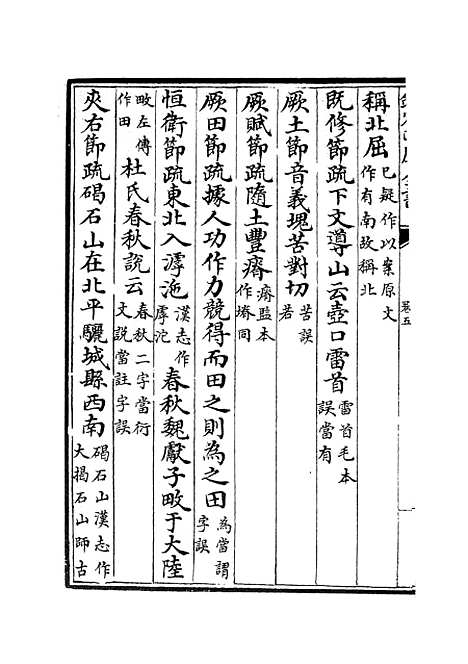 稱北屈已疑作以案原文作有南故稱北
既修節疏下文導山云壺口雷首雷首毛本誤當有
厥土節音義塊苦對切苦誤若
厥賦節疏隨土豐瘠瘠監本作塉同
厥田節疏據人功作力競得而田之則為之田為當謂字誤
恒衛節疏東北入滹沱漢志作虖沱春秋魏獻子畋于大陸
畋左傳作田杜氏春秋說云春秋二字當衍文說當註字誤
夾右節疏碣石山在北平驪城縣西南碣石山漢志作大揭石山師古
卷五